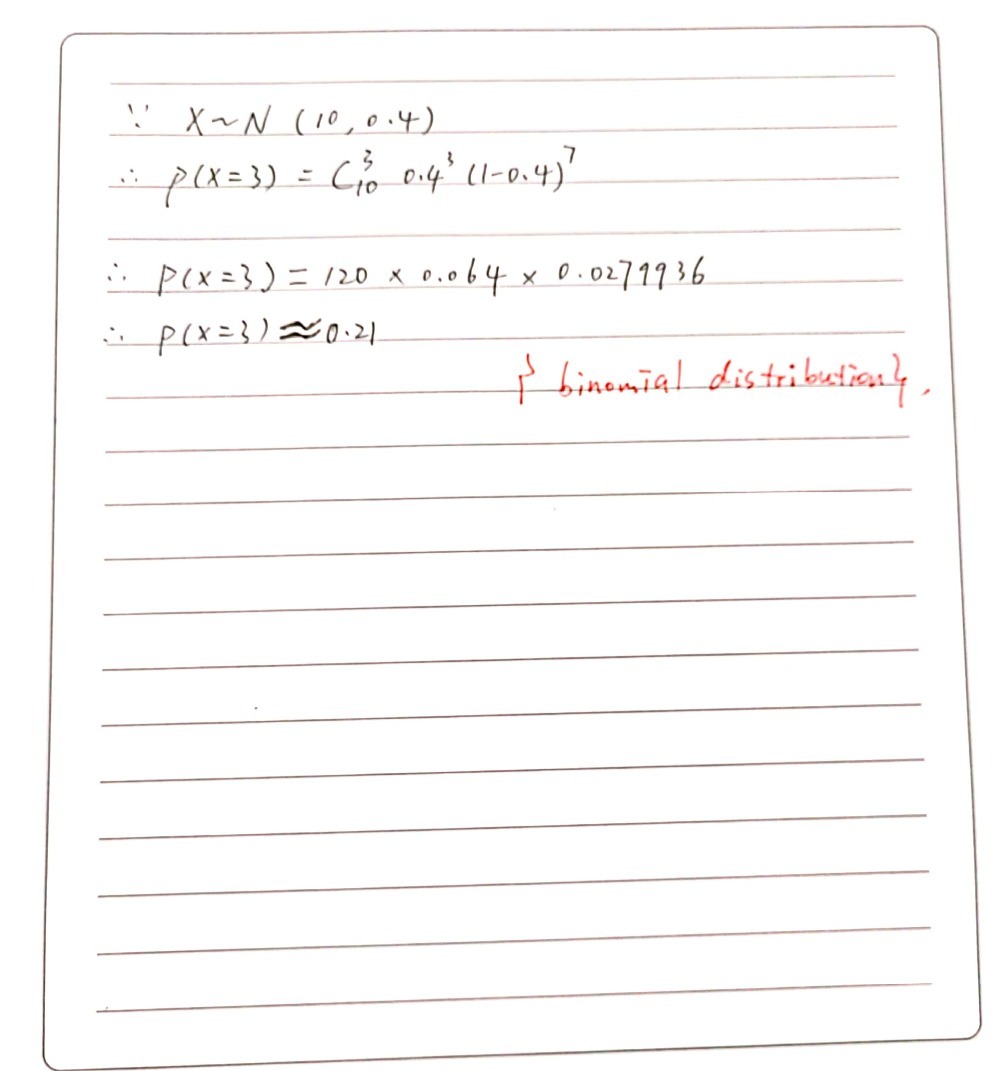 ∵ X~N (10, 0.4)
∴ P(X=3) = C₁₀³ 0.4³ (1-0.4)⁷
∴ P(X=3) = 120 × 0.064 × 0.0279936
∴ P(X=3) ≈ 0.21
{ binomial distribution }.